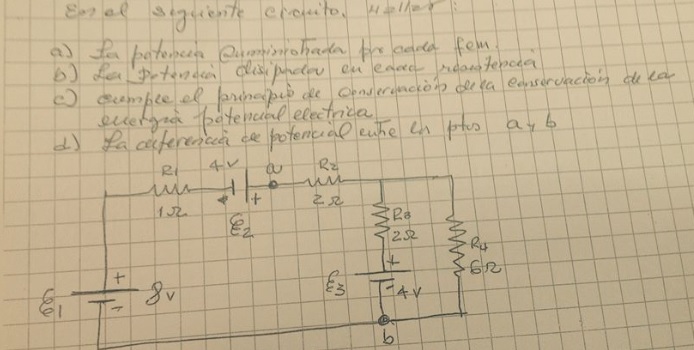 En el siguiente circuito, Hallar:
a) La potencia Suministrada por cada fem.
b) La potencia disipada en cada resistencia
c) cumple el principio de conservación de la conservación de la
energía potencial electrica
d) La diferencia de potencial entre en ptos a y b
R1 4V a R2
1Ω + 2Ω
ε2
R3
2Ω R4
+ 6Ω
ε1 + 8v ε3 + 4V
- -
b